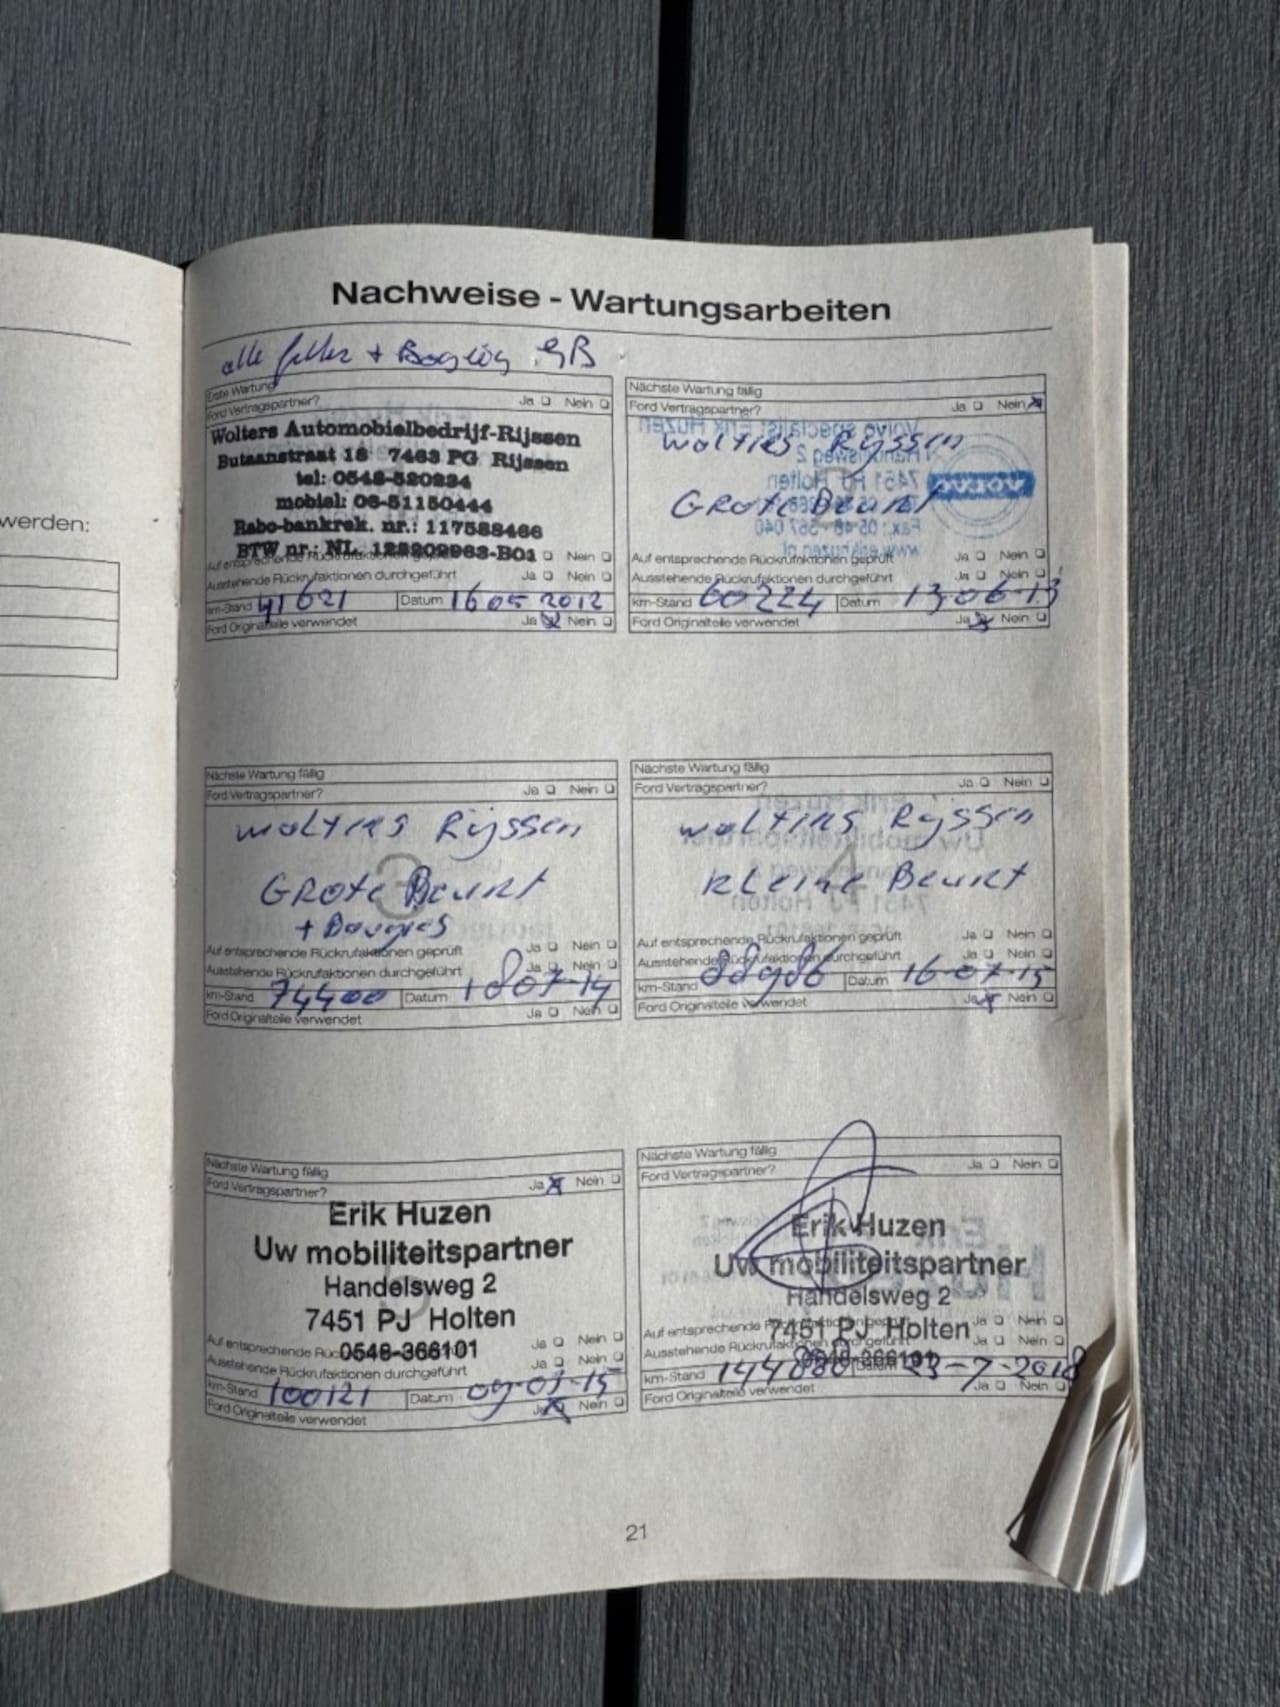 werden:
Nachweise - Wartungsarbeiten
alle + GB
Erste Wartung
Ford Vertragspartner? Ja Nein
Wolters Automobielbedrijf-Rijssen
Butaanstraat 18 7463 PG Rijssen
tel: 0548-520234
mobiel: 06-51150444
Rabo-bankrek. nr.: 117588466
BTW nr.: NL. -B01
Auf entsprechende Rückrufaktionen geprüft Ja Nein
Ausstehende Rückrufaktionen durchgeführt Ja Nein
km-Stand 41621 Datum 16 05 2012
Ford Originalteile verwendet Ja Nein
Nächste Wartung fällig
Ford Vertragspartner? Ja Nein
Wolters Ryssen
Grote Beurt
Volvo specialist Erik Huzen
Handelsweg 2
7451 PJ Holten
VOLVO
Fax.: 05 48 - 367 040
www.erikhuzen.nl
Auf entsprechende Rückrufaktionen geprüft Ja Nein
Ausstehende Rückrufaktionen durchgeführt Ja Nein
km-Stand 60224 Datum 13-06-13
Ford Originalteile verwendet Ja Nein
Nächste Wartung fällig
Ford Vertragspartner? Ja Nein
wolters Rijssen
3
Grote Beurt
+ Bougies
Auf entsprechende Rückrufaktionen geprüft Ja Nein
Ausstehende Rückrufaktionen durchgeführt Ja Nein
km-Stand 74400 Datum 18 07-14
Ford Originalteile verwendet Ja Nein
Nächste Wartung fällig
Ford Vertragspartner? Ja Nein
wolters Ryssen
4
kleine Beurt
Auf entsprechende Rückrufaktionen geprüft Ja Nein
Ausstehende Rückrufaktionen durchgeführt Ja Nein
km-Stand 88986 Datum 16-07-15
Ford Originalteile verwendet Ja Nein
Nächste Wartung fällig
Ford Vertragspartner? Ja Nein
Erik Huzen
Uw mobiliteitspartner
Handelsweg 2
7451 PJ Holten
0548-366101
Auf entsprechende Ja Nein
Ausstehende Rückrufaktionen durchgeführt Ja Nein
km-Stand 100121 Datum
Ford Originalteile verwendet Ja Nein
Nächste Wartung fällig
Ford Vertragspartner? Ja Nein
Erik Huzen
Uw mobiliteitspartner
Handelsweg 2
7451 PJ Holten
0548-366101
Auf entsprechende Rückrufaktionen geprüft Ja Nein
Ausstehende Rückrufaktionen durchgeführt Ja Nein
km-Stand 144880 Datum 23-7-2018
Ford Originalteile verwendet Ja Nein
21